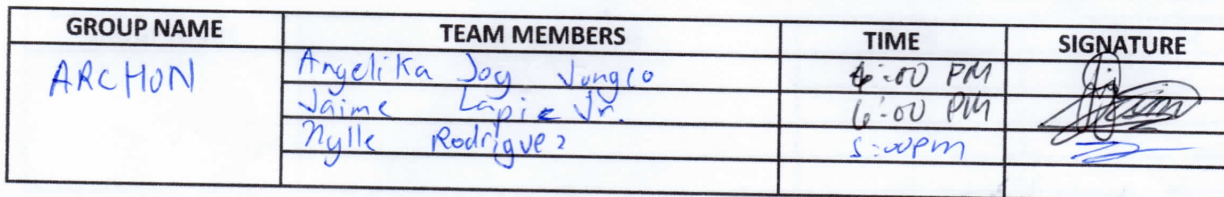 GROUP NAME TEAM MEMBERS TIME SIGNATURE
ARCHON Angelika Joy Jungco 6:00 PM
Jaime Lapie Jr. 6:00 PM
Nylle Rodriguez 5:00pm